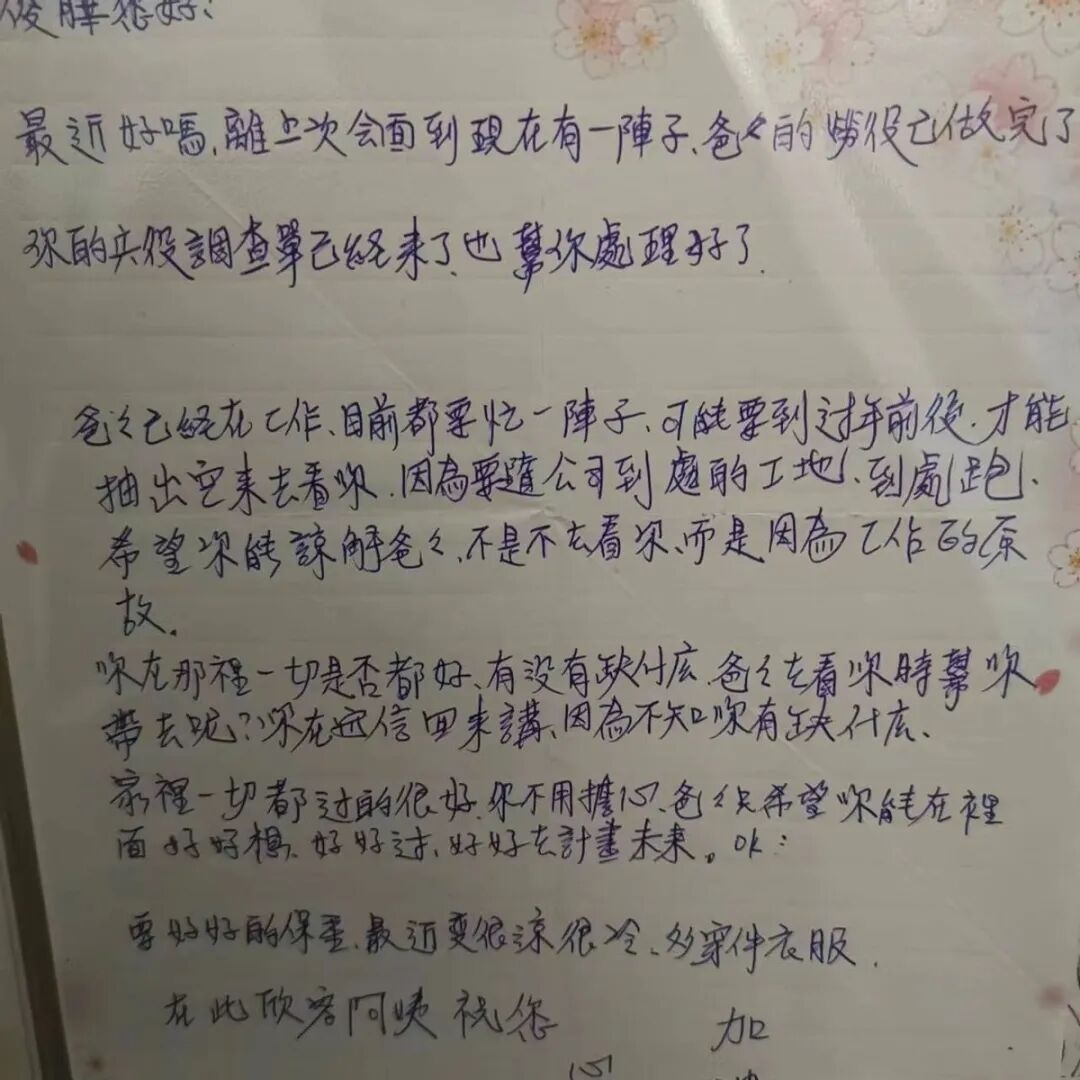 俊驊您好：
最近好嗎、離上次会面到現在有一陣子、爸々的勞役已做完了
你的兵役調查單已経来了、也幫你處理好了.
爸々已経在工作、目前都要忙一陣子、可能要到过年前後、才能
抽出空来去看你、因為要隨公司到處的工地、到處跑、
希望你能諒解爸々、不是不去看你、而是因為工作的原
故.
你在那裡一切是否都好、有没有缺什庅、爸々去看你時幫你
帶去呢？你在迊信回来講、因為不知你有缺什庅、
家裡一切都过的很好、你不用擔心、爸々只希望你能在裡
面好好想、好好过、好好去計畫未来。OK：
要好好的保重、最近变很涼很冷、多穿件衣服.
在此欣容阿姨祝您 加
心